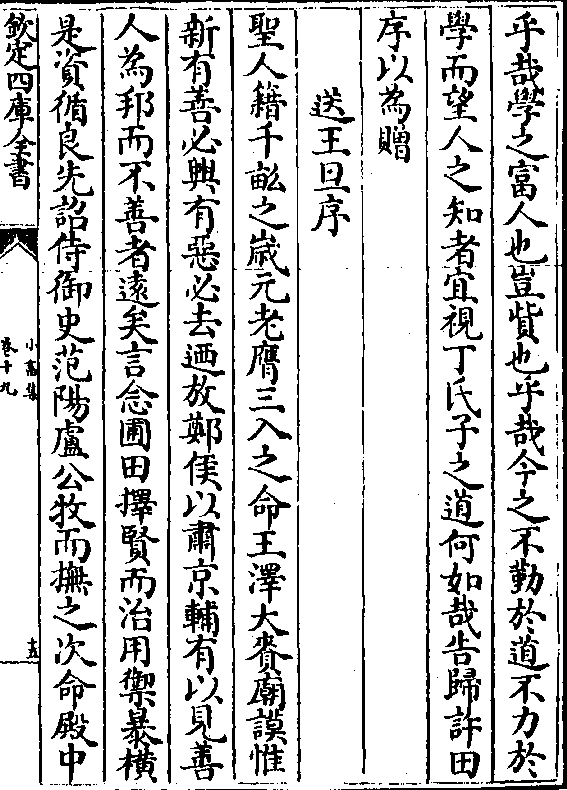 乎哉學之富人也豈貲也乎哉今之不勤於道不力於
學而望人之知者宜視丁氏子之道何如哉告歸許田
序以為贈
送王旦序
聖人籍千畝之歳元老膺三入之命王澤大賚廟謨惟
新有善必興有惡必去迺放鄭侯以肅京輔有以見善
人為邦而不善者遠矣言念圃田擇賢而治用禦暴橫
是資循良先詔侍御史范陽盧公牧而撫之次命殿中
欽定四庫全書
小畜集
卷十九
十五